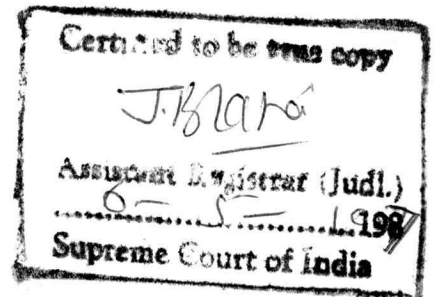 Certified to be true copy
Assistant Registrar (Judl.)
6 - 5 - 1987
Supreme Court of India